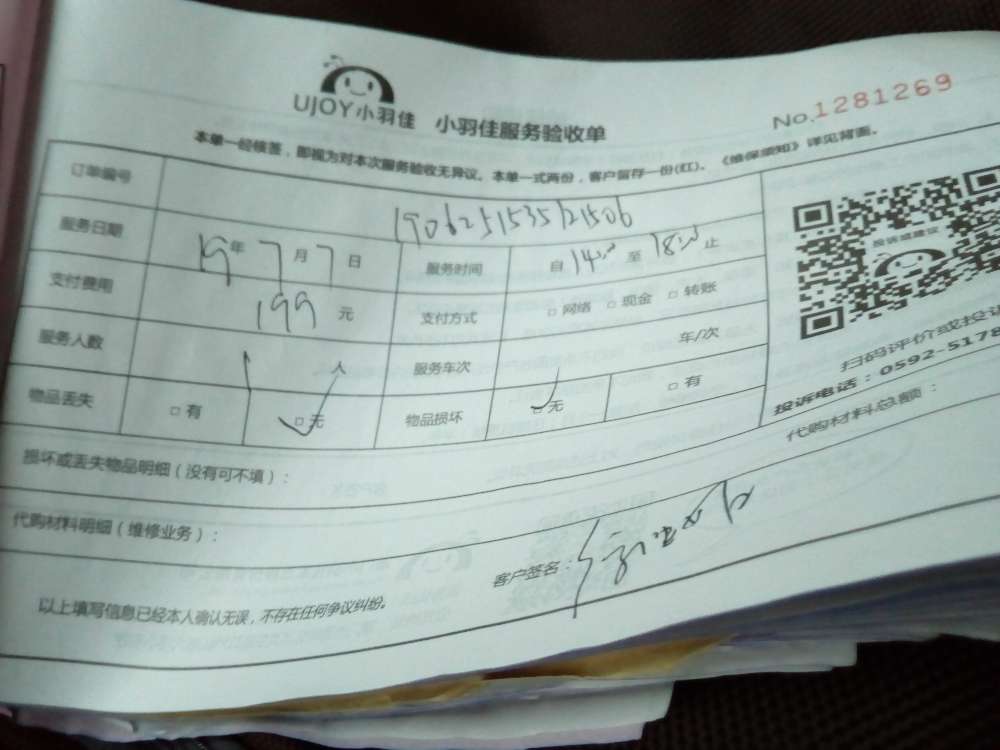 UJOY小羽佳 小羽佳服务验收单 No.1281269
本单一经核签，即视为对本次服务验收无异议。本单一式两份，客户留存一份(红)。《维保须知》详见背面。
订单编号 190625153521506
服务日期 19年7月7日 服务时间 自14:00至18:00止
支付费用 199元 支付方式 □网络 □现金 □转账
服务人数 1人 服务车次 车/次
物品丢失 □有 □无 物品损坏 □无 □有
投诉或建议
扫码评价或投诉
投诉电话：0592-5178
损坏或丢失物品明细（没有可不填）：
代购材料明细（维修业务）： 代购材料总额：
以上填写信息已经本人确认无误，不存在任何争议纠纷。 客户签名：